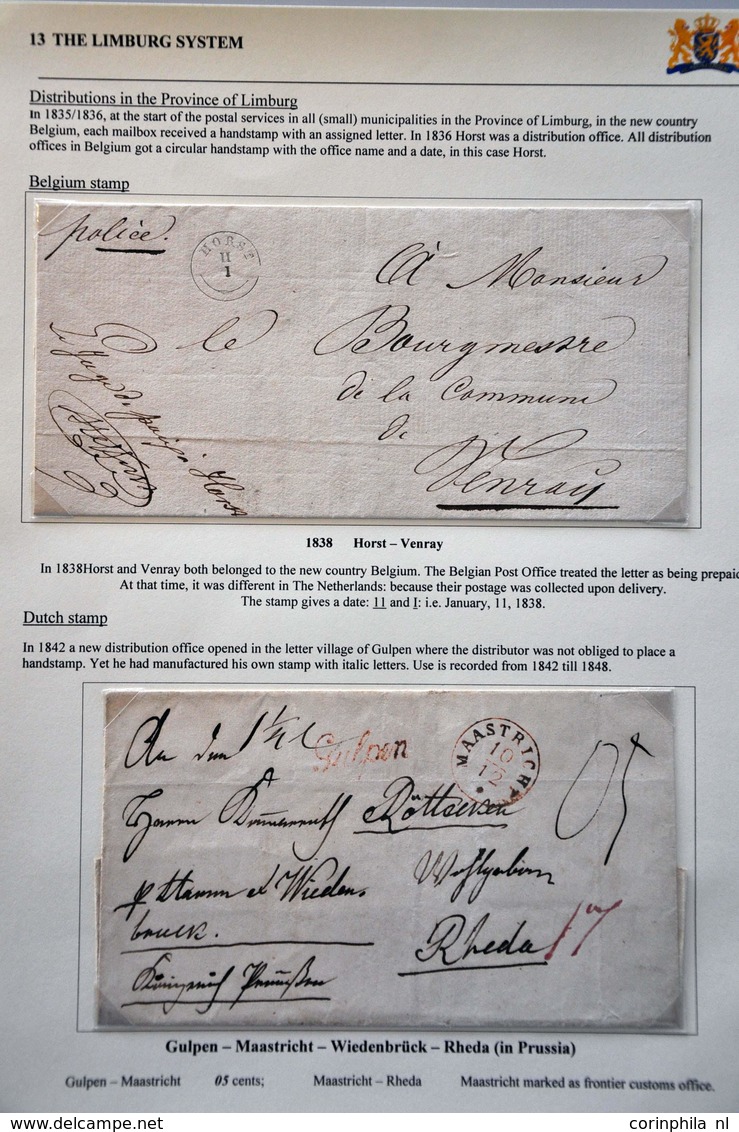 13 THE LIMBURG SYSTEM
Distributions in the Province of Limburg
In 1835/1836, at the start of the postal services in all (small) municipalities in the Province of Limburg, in the new country
Belgium, each mailbox received a handstamp with an assigned letter. In 1836 Horst was a distribution office. All distribution
offices in Belgium got a circular handstamp with the office name and a date, in this case Horst.
Belgium stamp
police.
HORST
11
1
À Monsieur
le Bourgmestre
de la Commune
de
Venray
Le Juge de paix de Horst
1838 Horst – Venray
In 1838Horst and Venray both belonged to the new country Belgium. The Belgian Post Office treated the letter as being prepaid
At that time, it was different in The Netherlands: because their postage was collected upon delivery.
The stamp gives a date: 11 and I: i.e. January, 11, 1838.
Dutch stamp
In 1842 a new distribution office opened in the letter village of Gulpen where the distributor was not obliged to place a
handstamp. Yet he had manufactured his own stamp with italic letters. Use is recorded from 1842 till 1848.
An den
Gulpen
MAASTRICHT
10
12
05
Herrn
Wohlgeboren
Wieden-
bruck.
Rheda
Königreich Preußen
Gulpen – Maastricht – Wiedenbrück – Rheda (in Prussia)
Gulpen – Maastricht 05 cents; Maastricht – Rheda Maastricht marked as frontier customs office.
corinphila nl